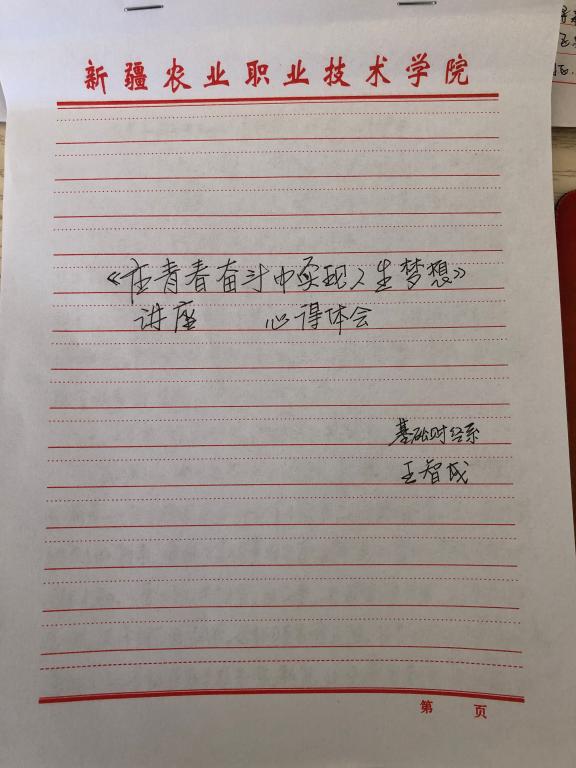 新疆农业职业技术学院
《在青春奋斗中实现人生梦想》
讲座 心得体会
基础财经系
王智成
第 页